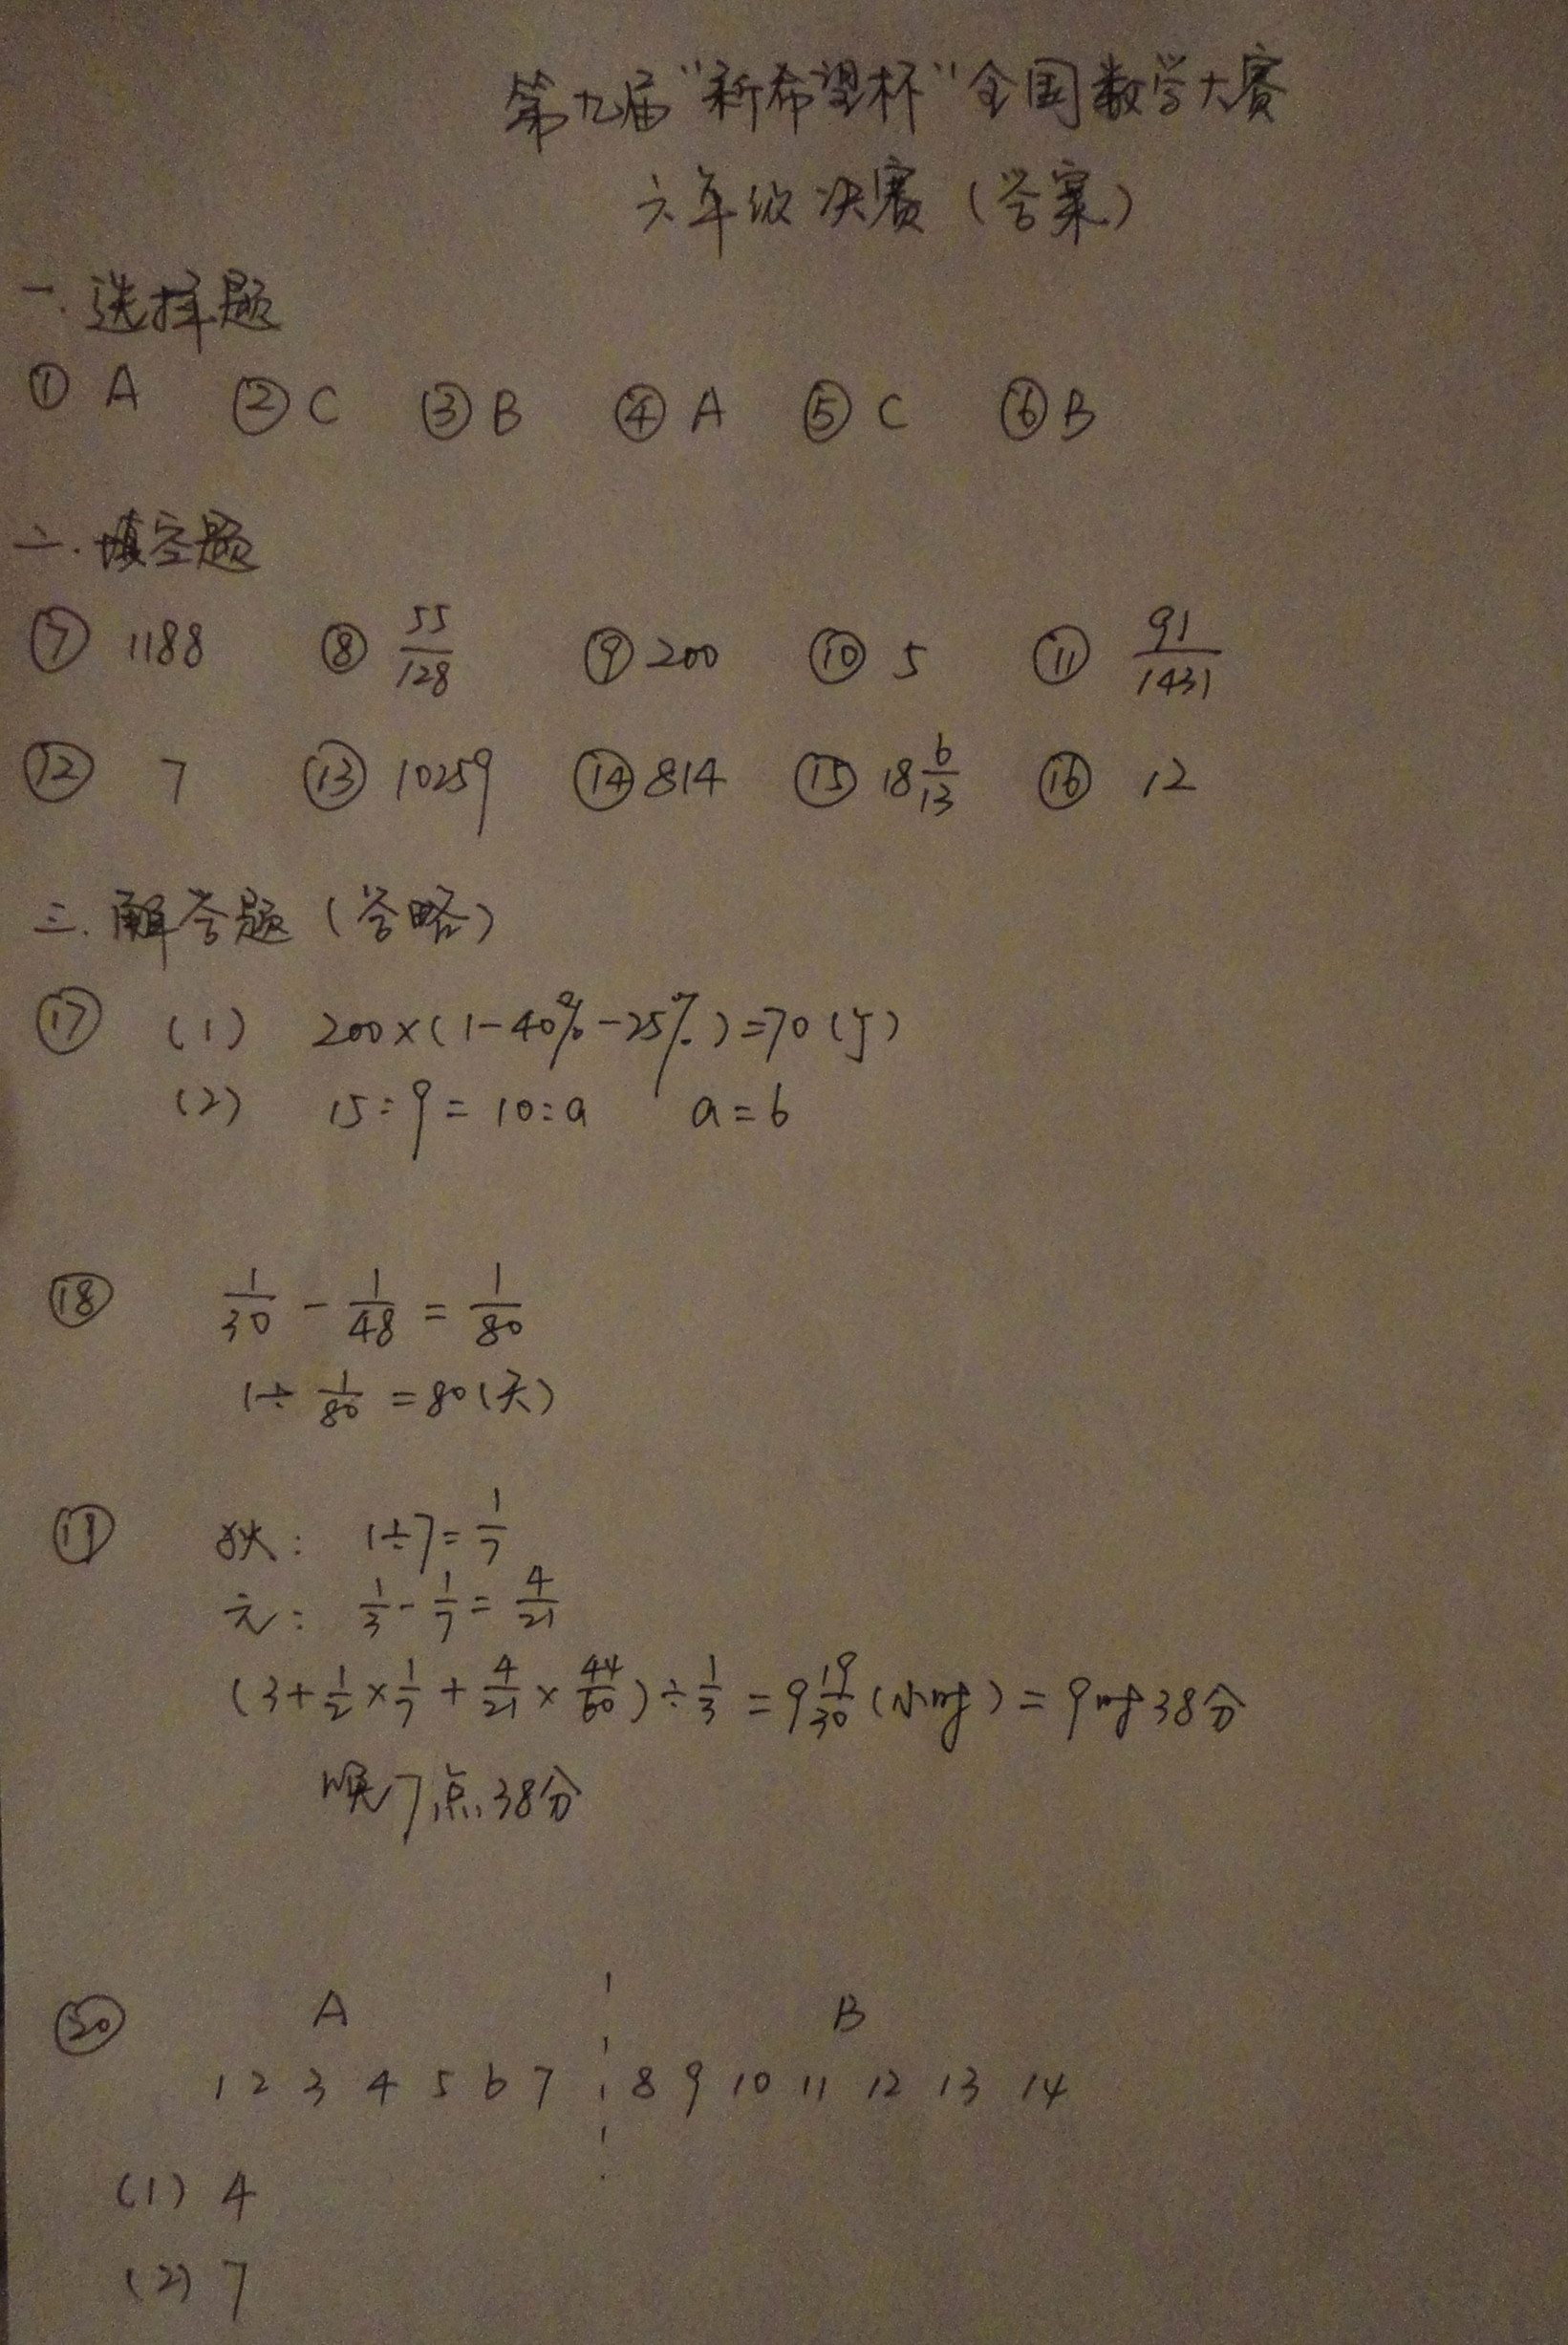 第九届“新希望杯”全国数学大赛
六年级决赛(答案)
一.选择题
① A ② C ③ B ④ A ⑤ C ⑥ B
二.填空题
⑦ 1188 ⑧ 55/128 ⑨ 200 ⑩ 5 ⑪ 91/1431
⑫ 7 ⑬ 10259 ⑭ 814 ⑮ 18 6/13 ⑯ 12
三.解答题(答略)
⑰ (1) 200×(1-40%-25%)=70()
(2) 15:9=10:a a=6
⑱ 1/30 - 1/48 = 1/80
1÷1/80=80(天)
⑲ 狄: 1÷7=1/7
元: 1/3-1/7=4/21
(3+1/2×1/7+4/21×44/60)÷1/3=9 19/30(小时)=9时38分
晚7点38分
⑳ A B
1 2 3 4 5 6 7 8 9 10 11 12 13 14
(1) 4
(2) 7